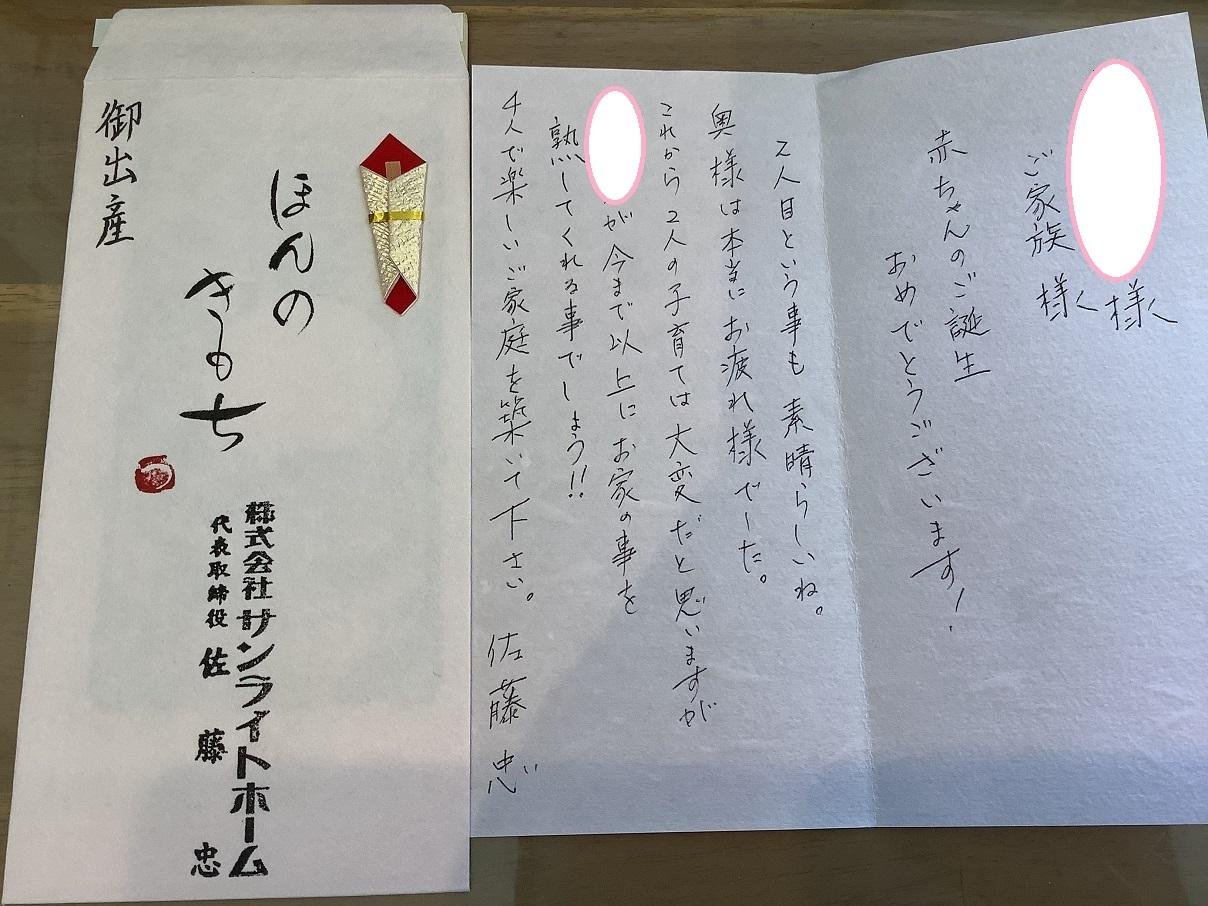 様
ご家族 様
赤ちゃんのご誕生
おめでとうございます!
2人目という事も素晴らしいね。
奥様は本当にお疲れ様でした。
これから2人の子育ては大変だと思いますが
が今まで以上にお家の事を
熟してくれる事でしょう!!
4人で楽しいご家庭を築いて下さい。 佐藤忠
ほんの
きもち
株式会社サンライトホーム
代表取締役 佐藤 忠
御出産